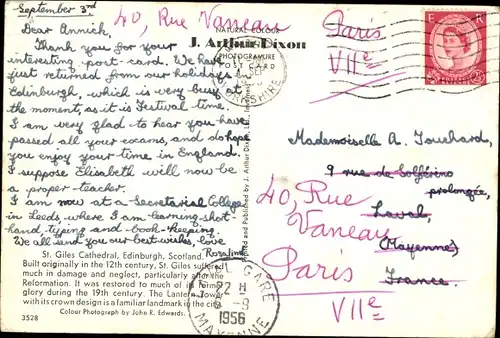 September 3rd
Dear Annick,
Thank you for your
interesting post-card. We have
just returned from our holidays in
Edinburgh, which is very busy at
the moment, as it is Festival time.
I am very glad to hear you have
passed all your exams, and do hope
you enjoy your time in England.
I suppose Elisabeth will now be
a proper teacher.
I am now at a Secretarial College
in Leeds, where I am learning short-
hand, typing and book-keeping.
We all send you our best wishes, love
Rosalind
St. Giles Cathedral, Edinburgh, Scotland.
Built originally in the 12th century, St. Giles suffered
much in damage and neglect, particularly after the
Reformation. It was restored to much of its former
glory during the 19th century. The Lantern Tower
with its crown design is a familiar landmark in the city.
Colour Photograph by John R. Edwards.
3528
NATURAL COLOUR
J. Arthur Dixon
PHOTOGRAVURE
POST CARD
SEP
Printed and Published by J. Arthur Dixon Ltd.
40, Rue Vaneau
Paris
VIIe
E R
Mademoiselle A. Touchard,
9 rue de Solférino
prolongée,
Laval,
(Mayenne)
France.
40, Rue
Vaneau
Paris
VIIe
GARE
22 H
9
1956
MAYENNE